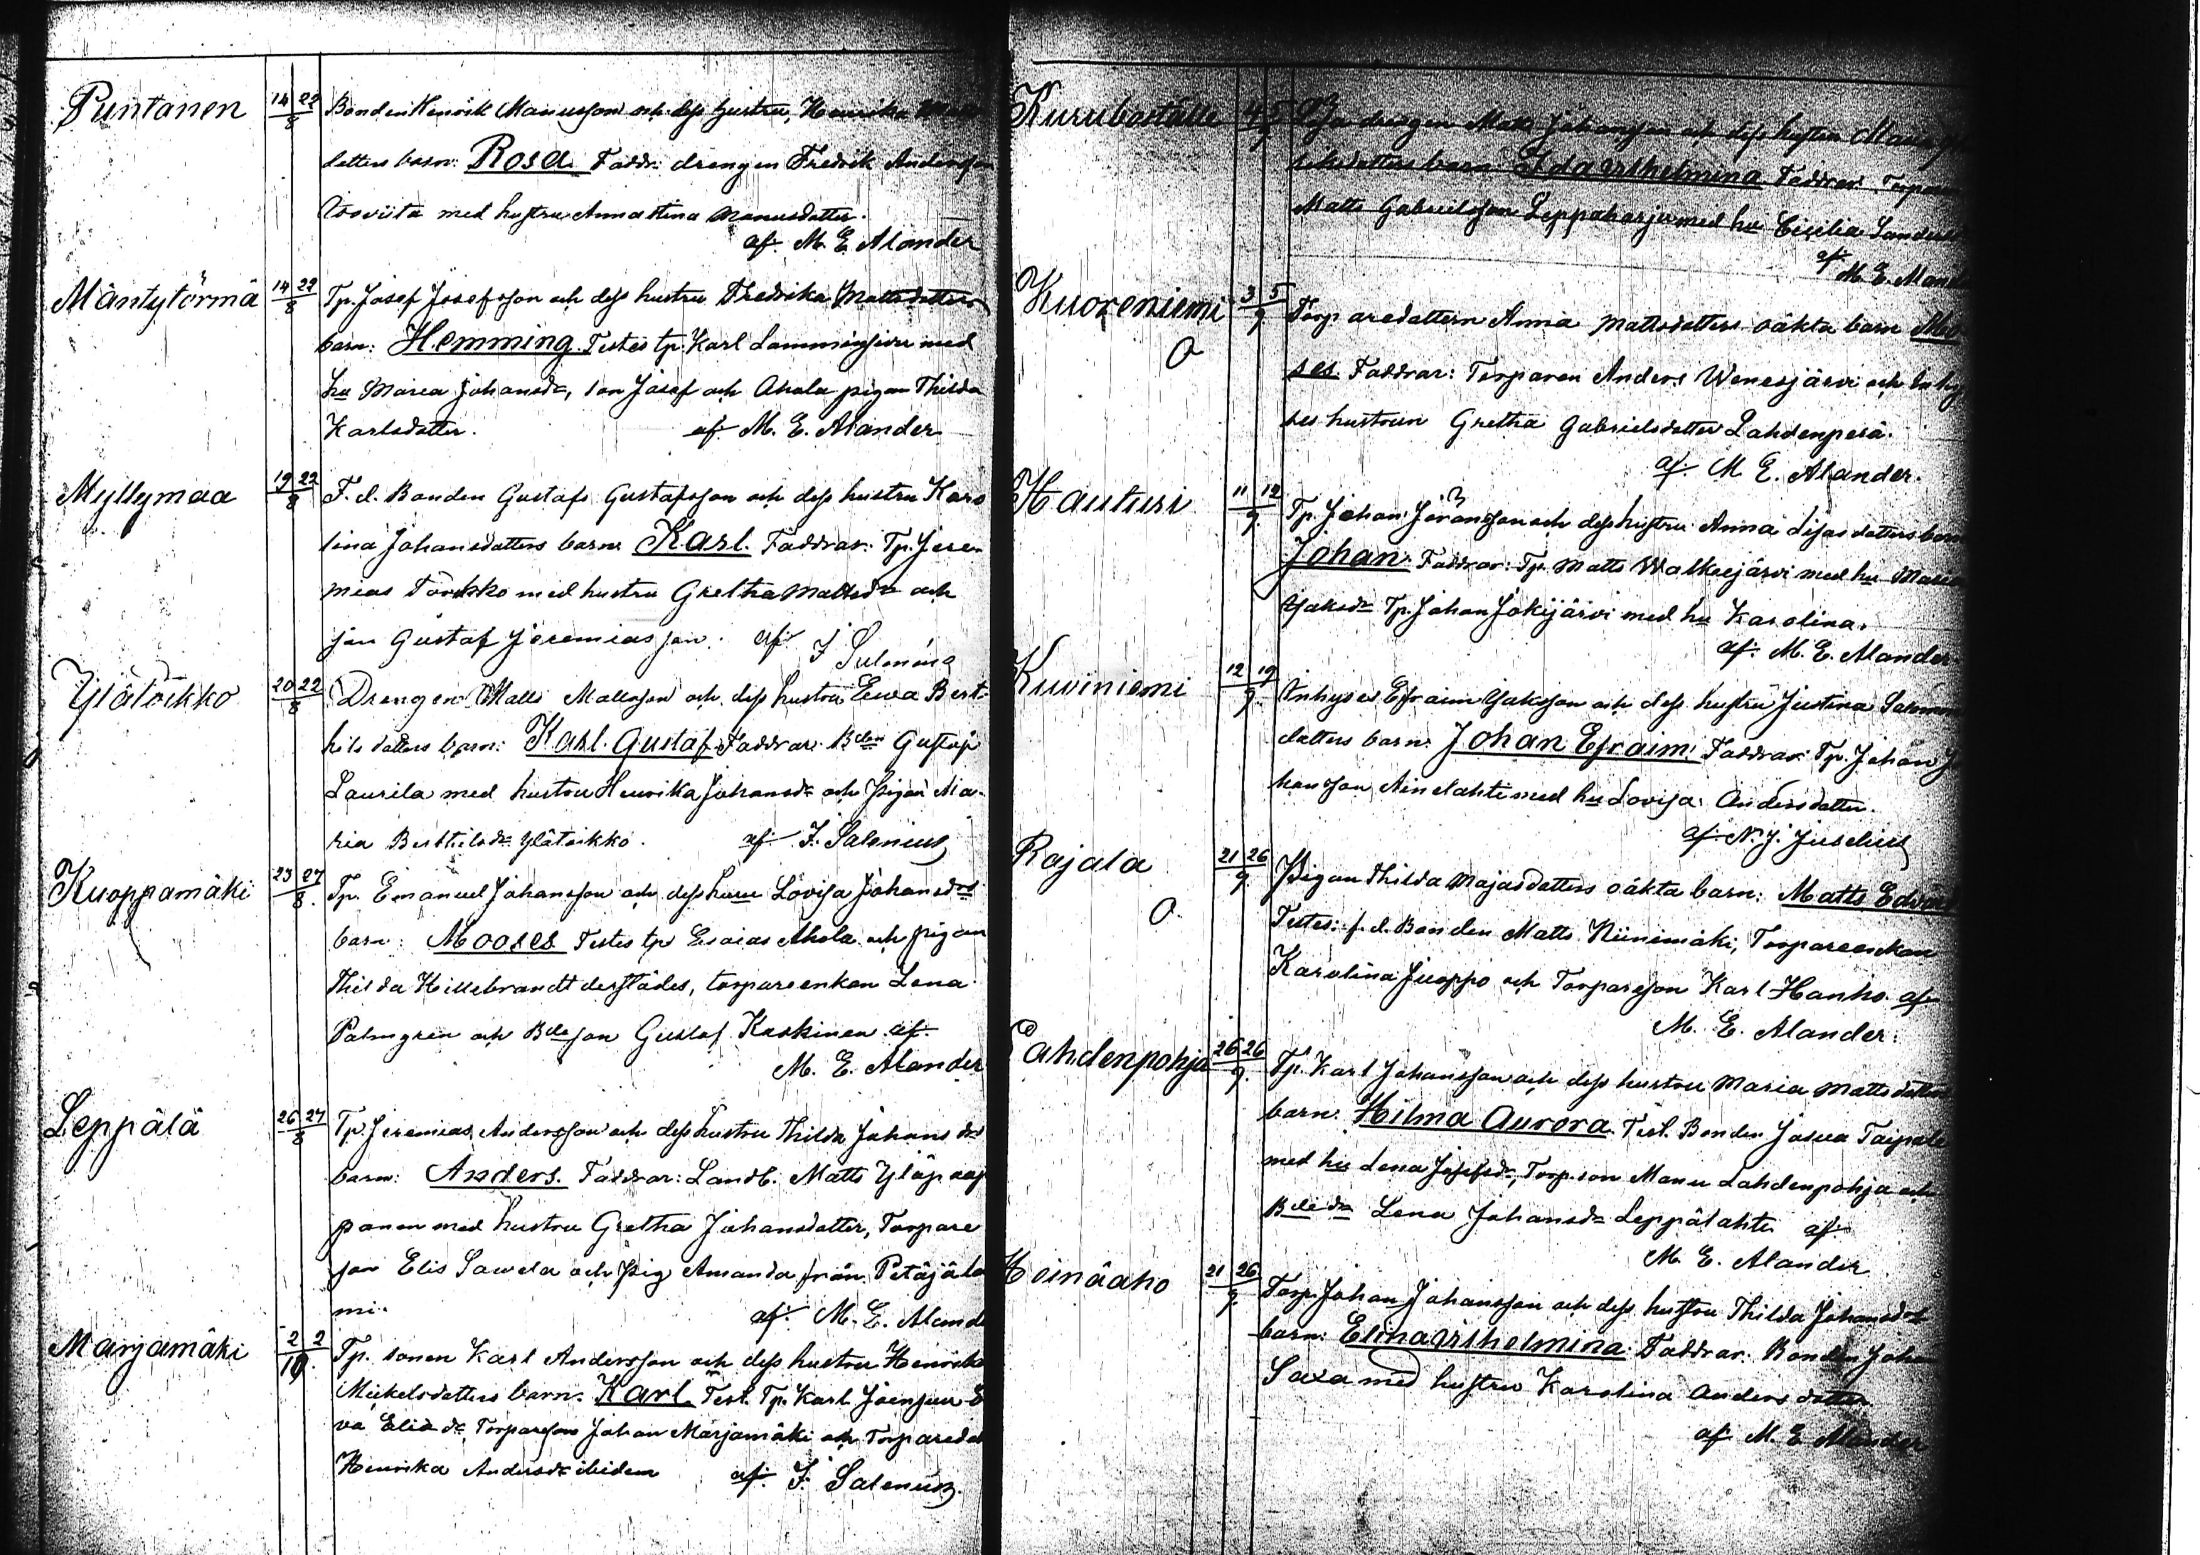 Puntanen 14 22/8 Bonden Henrik Manusson och dess hustru, Henrika
dotters barn: Rosa. Faddr: drengen Fredrik Andersson
med hustru Anna Stina Manusdotter.
af M. E. Alander
Mäntytörmä 14 22/8 Tp. Josef Josefsson och dess hustru Fredrika Mattsdotters
barn: Hemming. Testes tp. Karl Lamminsivu med
hu Maria Johansdr, son Josef och Ahola pigan Thilda
Karlsdotter. af M. E. Alander
Myllymaa 19 22/8 F. d. Bonden Gustaf Gustafsson och dess hustru Karo
lina Johansdotters barn Karl. Faddrar: Tp. Jere-
mias Torkko med hustru Gretha Mattsdr och
son Gustaf Jeremiasson. af J Salenius
Ylätoikko 20 22/8 Drengen Matts Mattsson och dess hustru Ewa Bert-
hils dotters barn: Karl Gustaf. Faddrar: Bden Gustaf
Laurila med hustru Henrika Johansdr och Pigan Ma-
ria Berthilsdr Ylätoikko. af J. Salenius
Kuoppamäki 23 27/8 Tp. Emanuel Johansson och dess hustru Lovisa Johansdrs
barn: Mooses Testes tp Esaias Ahola och pigan
Thilda Hillebrandt derstädes, torpareenkan Lena
Palmgren och Bdeson Gustaf Koskinen af
M. E. Alander
Leppälä 26 27/8 Tp Jeremias Andersson och dess hustru Thilda Johansdrs
barn: Anders. Faddrar: Landb. Matts Yläpaap
panen med hustru Gretha Johansdotter, Torpare
son Elis Sawela och Pig Amanda från Petäjäla
mi. af M. E. Aland
Marjamäki 2 2/10 Tp. sonen Karl Andersson och dess hustru Henrika
Mickelsdotters barn. Karl. Test. Tp. Karl Joensuu E
va Eliedr, Torpareson Johan Marjamäki och Torparedot
Henrika Andersdr ibidem af J. Salenius
Kuruboställe 4 5/9 drengen Matts Johansson och dess hustru Maria
riksdotters barn Ida Wilhelmina Faddrar Torparen
Matts Gabrielsson Leppäharju med hu Cicilia Sanders
af M. E. Aland
Kuoreniemi 3 5/9 Torparedottern Anna Mattsdotters oäkta barn Moo
O ses. Faddrar: Torparen Anders Wenesjärvi och Inhy
ses hustrun Gretha Gabrielsdotter Lahdenperä.
af M E. Alander.
Hautusi 11 12/9 Tp. Johan Joransson och dess hustru Anna Lisas dotters barn
Johan. Faddrar: Tp. Matts Walkeejärvi med hu Maria
Jaksdr Tp. Johan Jokijärvi med hu Karolina.
af. M. E. Alander.
Kuviniemi 12 19/9 Inhyses Efraim Jakson och dess hustru Justina Salomons
dotters barn. Johan Efraim. Faddrar: Tp. Johan Jo
hansson Ainelahti med hu Lovisa Andersdotter.
af N. J. Juselius
Rajala 21 26/9 Pigan Thilda Majasdotters oäkta barn: Matts Edvard
O. Testes: f. d. Bonden Matts Niinimäki, Torpareenkan
Karolina Juoppo och Torpareson Karl Hanho. af
M. E. Alander.
Lahdenpohja 26 26/9 Tp. Karl Johansson och dess hustru Maria Mattsdotters
barn. Hilma Aurora. Test. Bonden Josua Taipale
med hu Lena Josefsdr, Torp. son Manu Lahdenpohja och
Bdedr Lena Johansdr Leppälahti af
M. E. Alander
Heinäaho 21 26/9 Torp. Johan Johansson och dess hustru Thilda Johansdrs
barn: Elina Wilhelmina. Faddrar. Bonden Johan
Saxa med hustru Karolina Anders dotter
af M. E. Alander